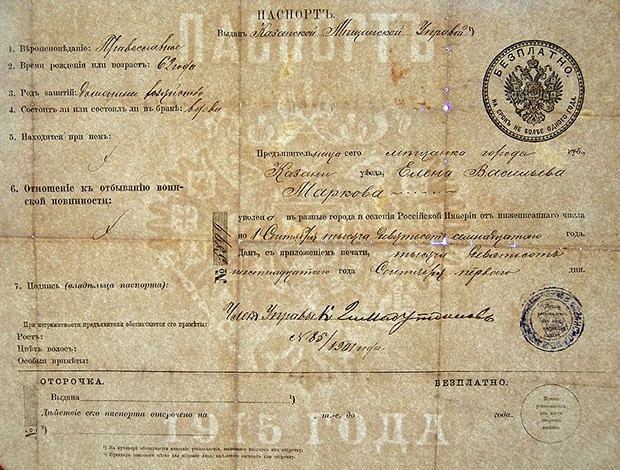 ПАСПОРТЪ.
Выданъ Казанской Мѣщанской Управой ¹)
1. Вѣроисповѣданіе: Православное
2. Время рожденія или возрастъ: 69 года
3. Родъ занятій: домашнее хозяйство
4. Состоитъ ли или состоялъ ли въ бракѣ: вдова
5. Находятся при немъ:
БЕЗПЛАТНО.
НА СРОКЪ НЕ БОЛѢЕ ОДНОГО ГОДА.
Предъявительница сего мѣщанка города губ.,
Казани уѣзда, Елена Васильева
Маркова
6. Отношеніе къ отбыванію воин-
ской повинности:
уволена въ разные города и селенія Россійской Имперіи отъ нижеписаннаго числа
по 1 Сентября тысяча девятьсотъ семнадцатаго года.
Данъ, съ приложеніемъ печати, тысяча девятьсотъ
шестнадцатаго года Сентября перваго дня.
№
7. Подпись (владѣльца паспорта):
Членъ Управы
При неграмотности предъявителя обозначаются его примѣты:
Ростъ:
Цвѣтъ волосъ:
Особыя примѣты:
№ 85/1901 года
ОТСРОЧКА. БЕЗПЛАТНО.
Выдана ¹)
Дѣйствіе сего паспорта отсрочено на , т.-е. до года.
²)
Печать
установленія,
выдавшаго
отсрочку
ПАСПОРТЪ
1915 ГОДА